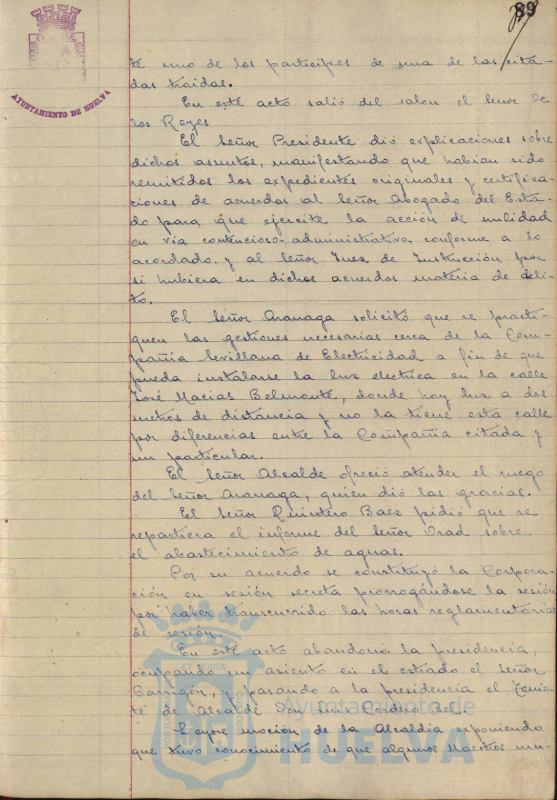 89
AYUNTAMIENTO DE HUELVA
te uno de los participes de una de las cita-
das traidas.
En este acto salió del salon el Señor de
los Reyes
El Señor Presidente dió explicaciones sobre
dichos asuntos, manifestando que habian sido
remitidos los expedientes originales y certifica-
ciones de acuerdos al Señor Abogado del Esta-
do para que ejercite la acción de nulidad
en via contencioso-administrativa, conforme a lo
acordado, y al Señor Juez de Instrucción por
si hubiera en dichos acuerdos materia de deli-
to.
El Señor Aranaga solicitó que se practi-
quen las gestiones necesarias cerca de la Com-
pañia Sevillana de Electricidad a fin de que
pueda instalarse la luz electrica en la calle
José Macias Belmonte, donde hay luz a dos
metros de distancia y no la tiene esta calle
por diferencias entre la Compañia citada y
un particular.
El Señor Alcalde ofreció atender el ruego
del Señor Aranaga, quien dió las gracias.
El Señor Quintero Baez pidió que se
repartiera el informe del Señor Orad sobre
el abastecimiento de aguas.
Por su acuerdo se constituyó la Corpora-
ción en sesión secreta prorrogándose la sesión
por haber transcurrido las horas reglamentarias
de sesión.
En este acto abandona la presidencia,
ocupando un asiento en el estrado el Señor
Barrigón, y pasando a la presidencia el Tenien-
te de Alcalde Don Luis Cordero Bel.
Leyose moción de la Alcaldia exponiendo
que tuvo conocimiento de que algunos Maestros mu-
Ayuntamiento de
HUELVA